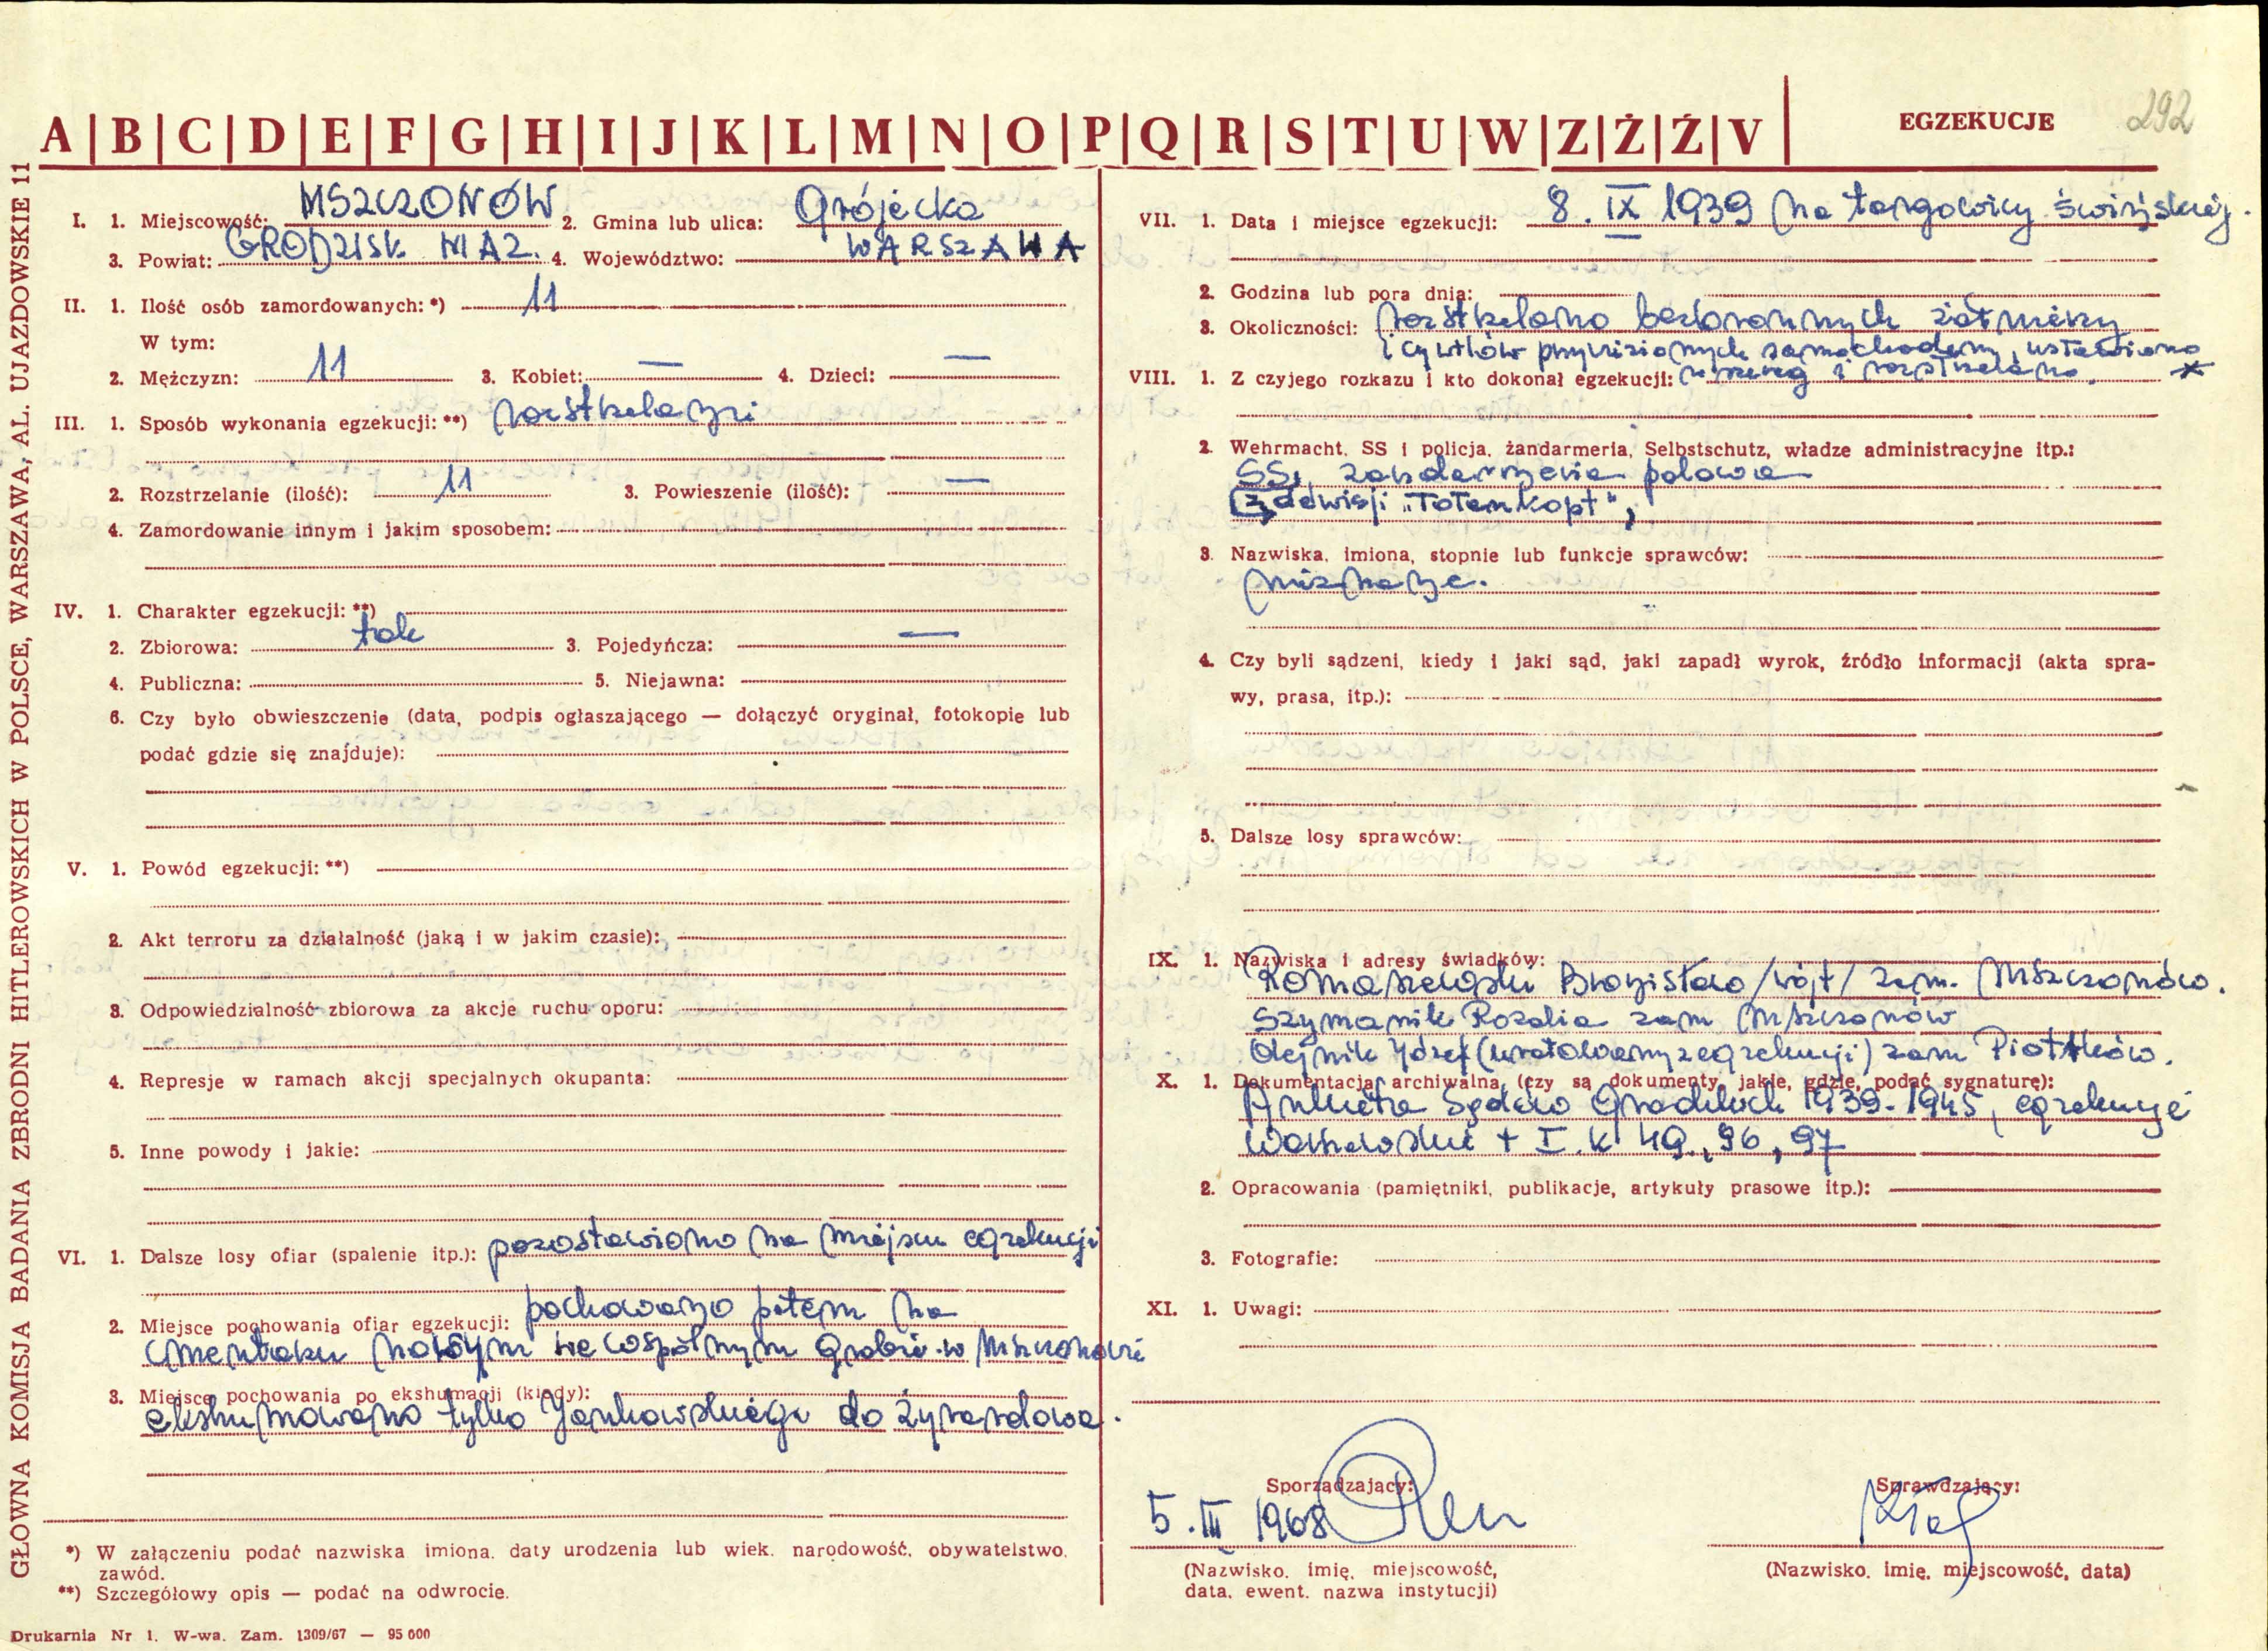 A|B|C|D|E|F|G|H|I|J|K|L|M|N|O|P|Q|R|S|T|U|W|Z|Ż|Ź|V|
EGZEKUCJE 292
GŁOWNA KOMISJA BADANIA ZBRODNI HITLEROWSKICH W POLSCE, WARSZAWA, AL. UJAZDOWSKIE 11
I. 1. Miejscowość: MSZCZONÓW 2. Gmina lub ulica: Grójecka
3. Powiat: GRODZISK MAZ. 4. Województwo: WARSZAWA
II. 1. Ilość osób zamordowanych: *) 11
W tym:
2. Mężczyzn: 11 3. Kobiet: — 4. Dzieci: —
III. 1. Sposób wykonania egzekucji: **) rozstrzelani
2. Rozstrzelanie (ilość): 11 3. Powieszenie (ilość): —
4. Zamordowanie innym i jakim sposobem:
IV. 1. Charakter egzekucji: **)
2. Zbiorowa: tak 3. Pojedyńcza: —
4. Publiczna: 5. Niejawna:
6. Czy było obwieszczenie (data, podpis ogłaszającego — dołączyć oryginał, fotokopie lub
podać gdzie się znajduje):
V. 1. Powód egzekucji: **)
2. Akt terroru za działalność (jaką i w jakim czasie):
3. Odpowiedzialność zbiorowa za akcje ruchu oporu:
4. Represje w ramach akcji specjalnych okupanta:
5. Inne powody i jakie:
VI. 1. Dalsze losy ofiar (spalenie itp.): pozostawiono na miejscu egzekucji
2. Miejsce pochowania ofiar egzekucji: pochowano potem na
cmentarzu we wspólnym grobie w Mszczonowie
3. Miejsce pochowania po ekshumacji (kiedy):
ekshumowano tylko Jankowskiego do Żyrardowa.
*) W załączeniu podać nazwiska imiona, daty urodzenia lub wiek, narodowość, obywatelstwo,
zawód.
**) Szczegółowy opis — podać na odwrocie.
Drukarnia Nr 1. W-wa. Zam. 1309/67 — 95 000
VII. 1. Data i miejsce egzekucji: 8. IX 1939 na targowicy świńskiej.
2. Godzina lub pora dnia:
3. Okoliczności: rozstrzelano bezbronnych żołnierzy
i cywilów przywiezionych samochodem, ustawiono
VIII. 1. Z czyjego rozkazu i kto dokonał egzekucji: w szereg i rozstrzelano. *
2. Wehrmacht, SS i policja, żandarmeria, Selbstschutz, władze administracyjne itp.:
SS, żandarmeria polowa
z dewisji "Totenkopt",
3. Nazwiska, imiona, stopnie lub funkcje sprawców:
nieznane.
4. Czy byli sądzeni, kiedy i jaki sąd, jaki zapadł wyrok, źródło informacji (akta spra-
wy, prasa, itp.):
5. Dalsze losy sprawców:
IX. 1. Nazwiska i adresy świadków:
Romaszewski Bronisław /wójt/ zam. Mszczonów.
Szymanik Rozalia zam Mszczonów
Olejnik Józef (uratowany z egzekucji) zam Piotrków.
X. 1. Dokumentacja archiwalna, (czy są dokumenty, jakie, gdzie, podać sygnaturę):
Ankieta Sądów Grodzkich 1939-1945, egzekucje
warszawskie t I. k 49, 96, 97
2. Opracowania (pamiętniki, publikacje, artykuły prasowe itp.):
3. Fotografie:
XI. 1. Uwagi:
Sporządzający:
5. III 1968
(Nazwisko, imię, miejscowość,
data, ewent. nazwa instytucji)
Sprawdzający:
(Nazwisko, imię, miejscowość, data)